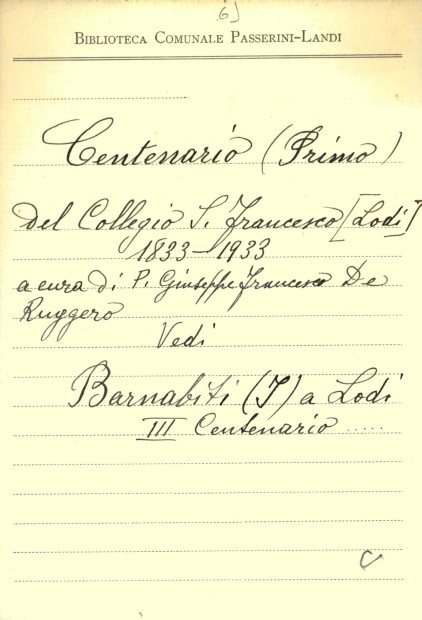 6)
BIBLIOTECA COMUNALE PASSERINI-LANDI
Centenario (Primo)
del Collegio S. Francesco [Lodi]
1833-1933
a cura di P. Giuseppe Francesco De
Ruggero
Vedi
Barnabiti (I) a Lodi
III Centenario .....
C